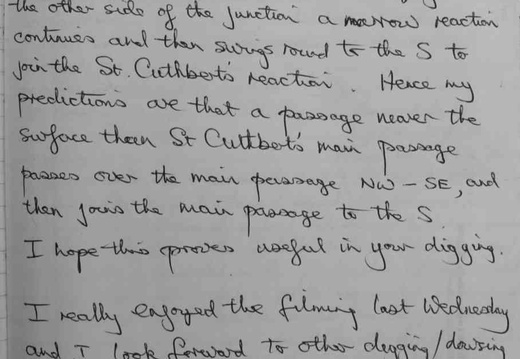 the other side of the junction a narrow reaction
continues and then swings round to the S to
join the St. Cuthbert's reaction. Hence my
predictions are that a passage nearer the
surface than St Cuthbert's main passage
passes over the main passage NW - SE, and
then joins the main passage to the S
I hope this proves useful in your digging.
I really enjoyed the filming last Wednesday
and I look forward to other digging/dowsing